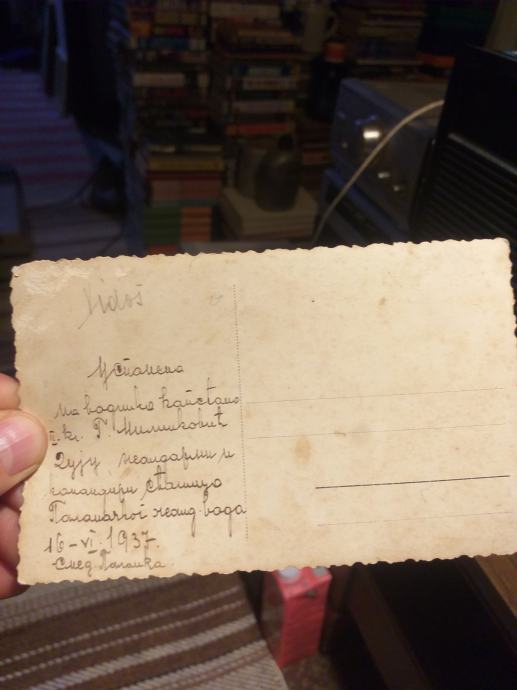 Vidoš
Успомена
на водника капетана
II. кл. Г. Милинковић
жандарми и
командири станица
Паланачког жанд. вода
16-VI. 1937.
Смед. Паланка